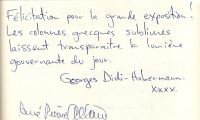 Félicitation pour la grande exposition !
Les colonnes grecques sublimes
laissent transparaître la lumière
gouvernante du jour.
Georges Didi-Huberman.
xxxx.